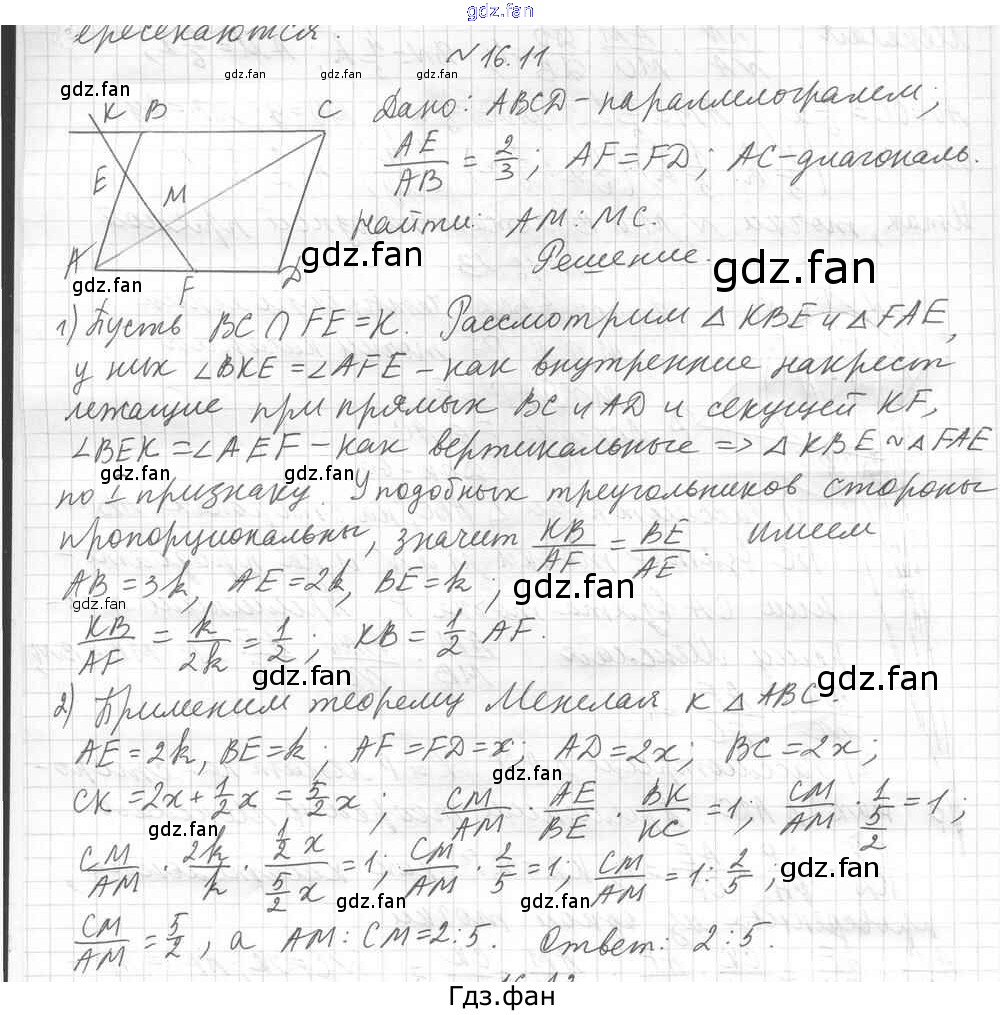 gdz.fan
ересекаются.
N 16.11
gdz.fan
gdz.fan
gdz.fan
K B C Дано: ABCD – параллелограмм;
AE/AB = 2/3; AF = FD; AC – диагональ.
E M
найти: AM : MC.
A F D gdz.fan Решение. gdz.fan
gdz.fan
1) Пусть BC ∩ FE = K. Рассмотрим △ KBE и △ FAE,
у них ∠BKE = ∠AFE – как внутренние накрест
лежащие при прямых BC и AD и секущей KF,
∠BEK = ∠AEF – как вертикальные => △ KBE ~ △ FAE
gdz.fan gdz.fan
по 1 признаку. У подобных треугольников стороны
пропорциональны, значит KB/AF = BE/AE. Имеем
AB = 3k, AE = 2k, BE = k; gdz.fan
gdz.fan
KB/AF = k/2k = 1/2; KB = 1/2 AF.
gdz.fan gdz.fan
2) Применим теорему Менелая к △ ABC.
AE = 2k, BE = k; AF = FD = x; AD = 2x; BC = 2x;
gdz.fan
CK = 2x + 1/2 x = 5/2 x; CM/AM · AE/BE · BK/KC = 1; CM/AM · 1/(5/2) = 1;
gdz.fan
CM/AM · 2k/k · (1/2 x)/(5/2 x) = 1; CM/AM · 2/5 = 1; CM/AM = 1 : 2/5;
gdz.fan gdz.fan gdz.fan
CM/AM = 5/2, а AM : CM = 2 : 5. Ответ: 2 : 5.
gdz.fan
Гдз.фан